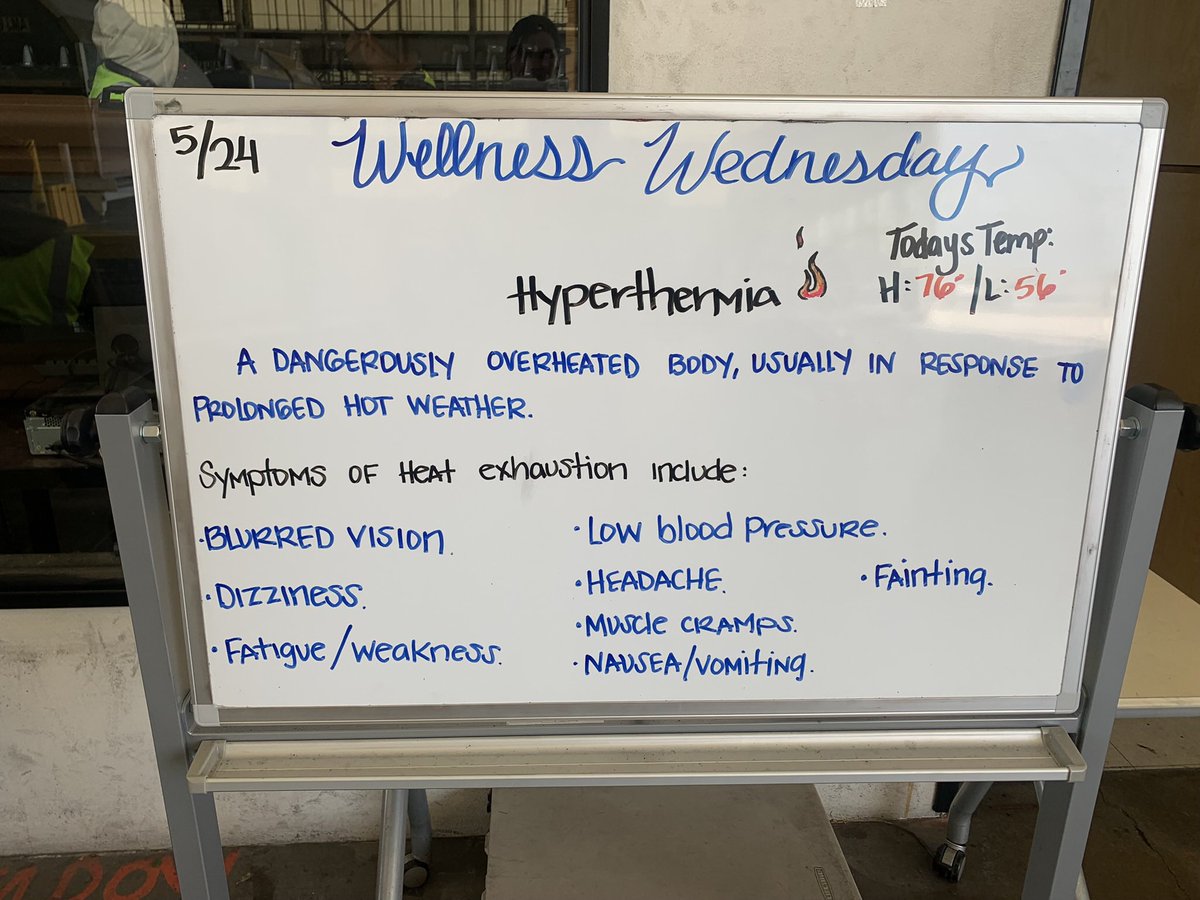 5/24
Wellness Wednesday
Todays Temp:
H: 76° / L: 56°
Hyperthermia
A DANGEROUSLY OVERHEATED BODY, USUALLY IN RESPONSE TO
PROLONGED HOT WEATHER.
Symptoms of Heat exhaustion include:
· BLURRED VISION.
· Dizziness.
· Fatigue/weakness.
· Low blood pressure.
· HEADACHE.
· Muscle CRAMPS.
· NAUSEA/VOMITING.
· Fainting.